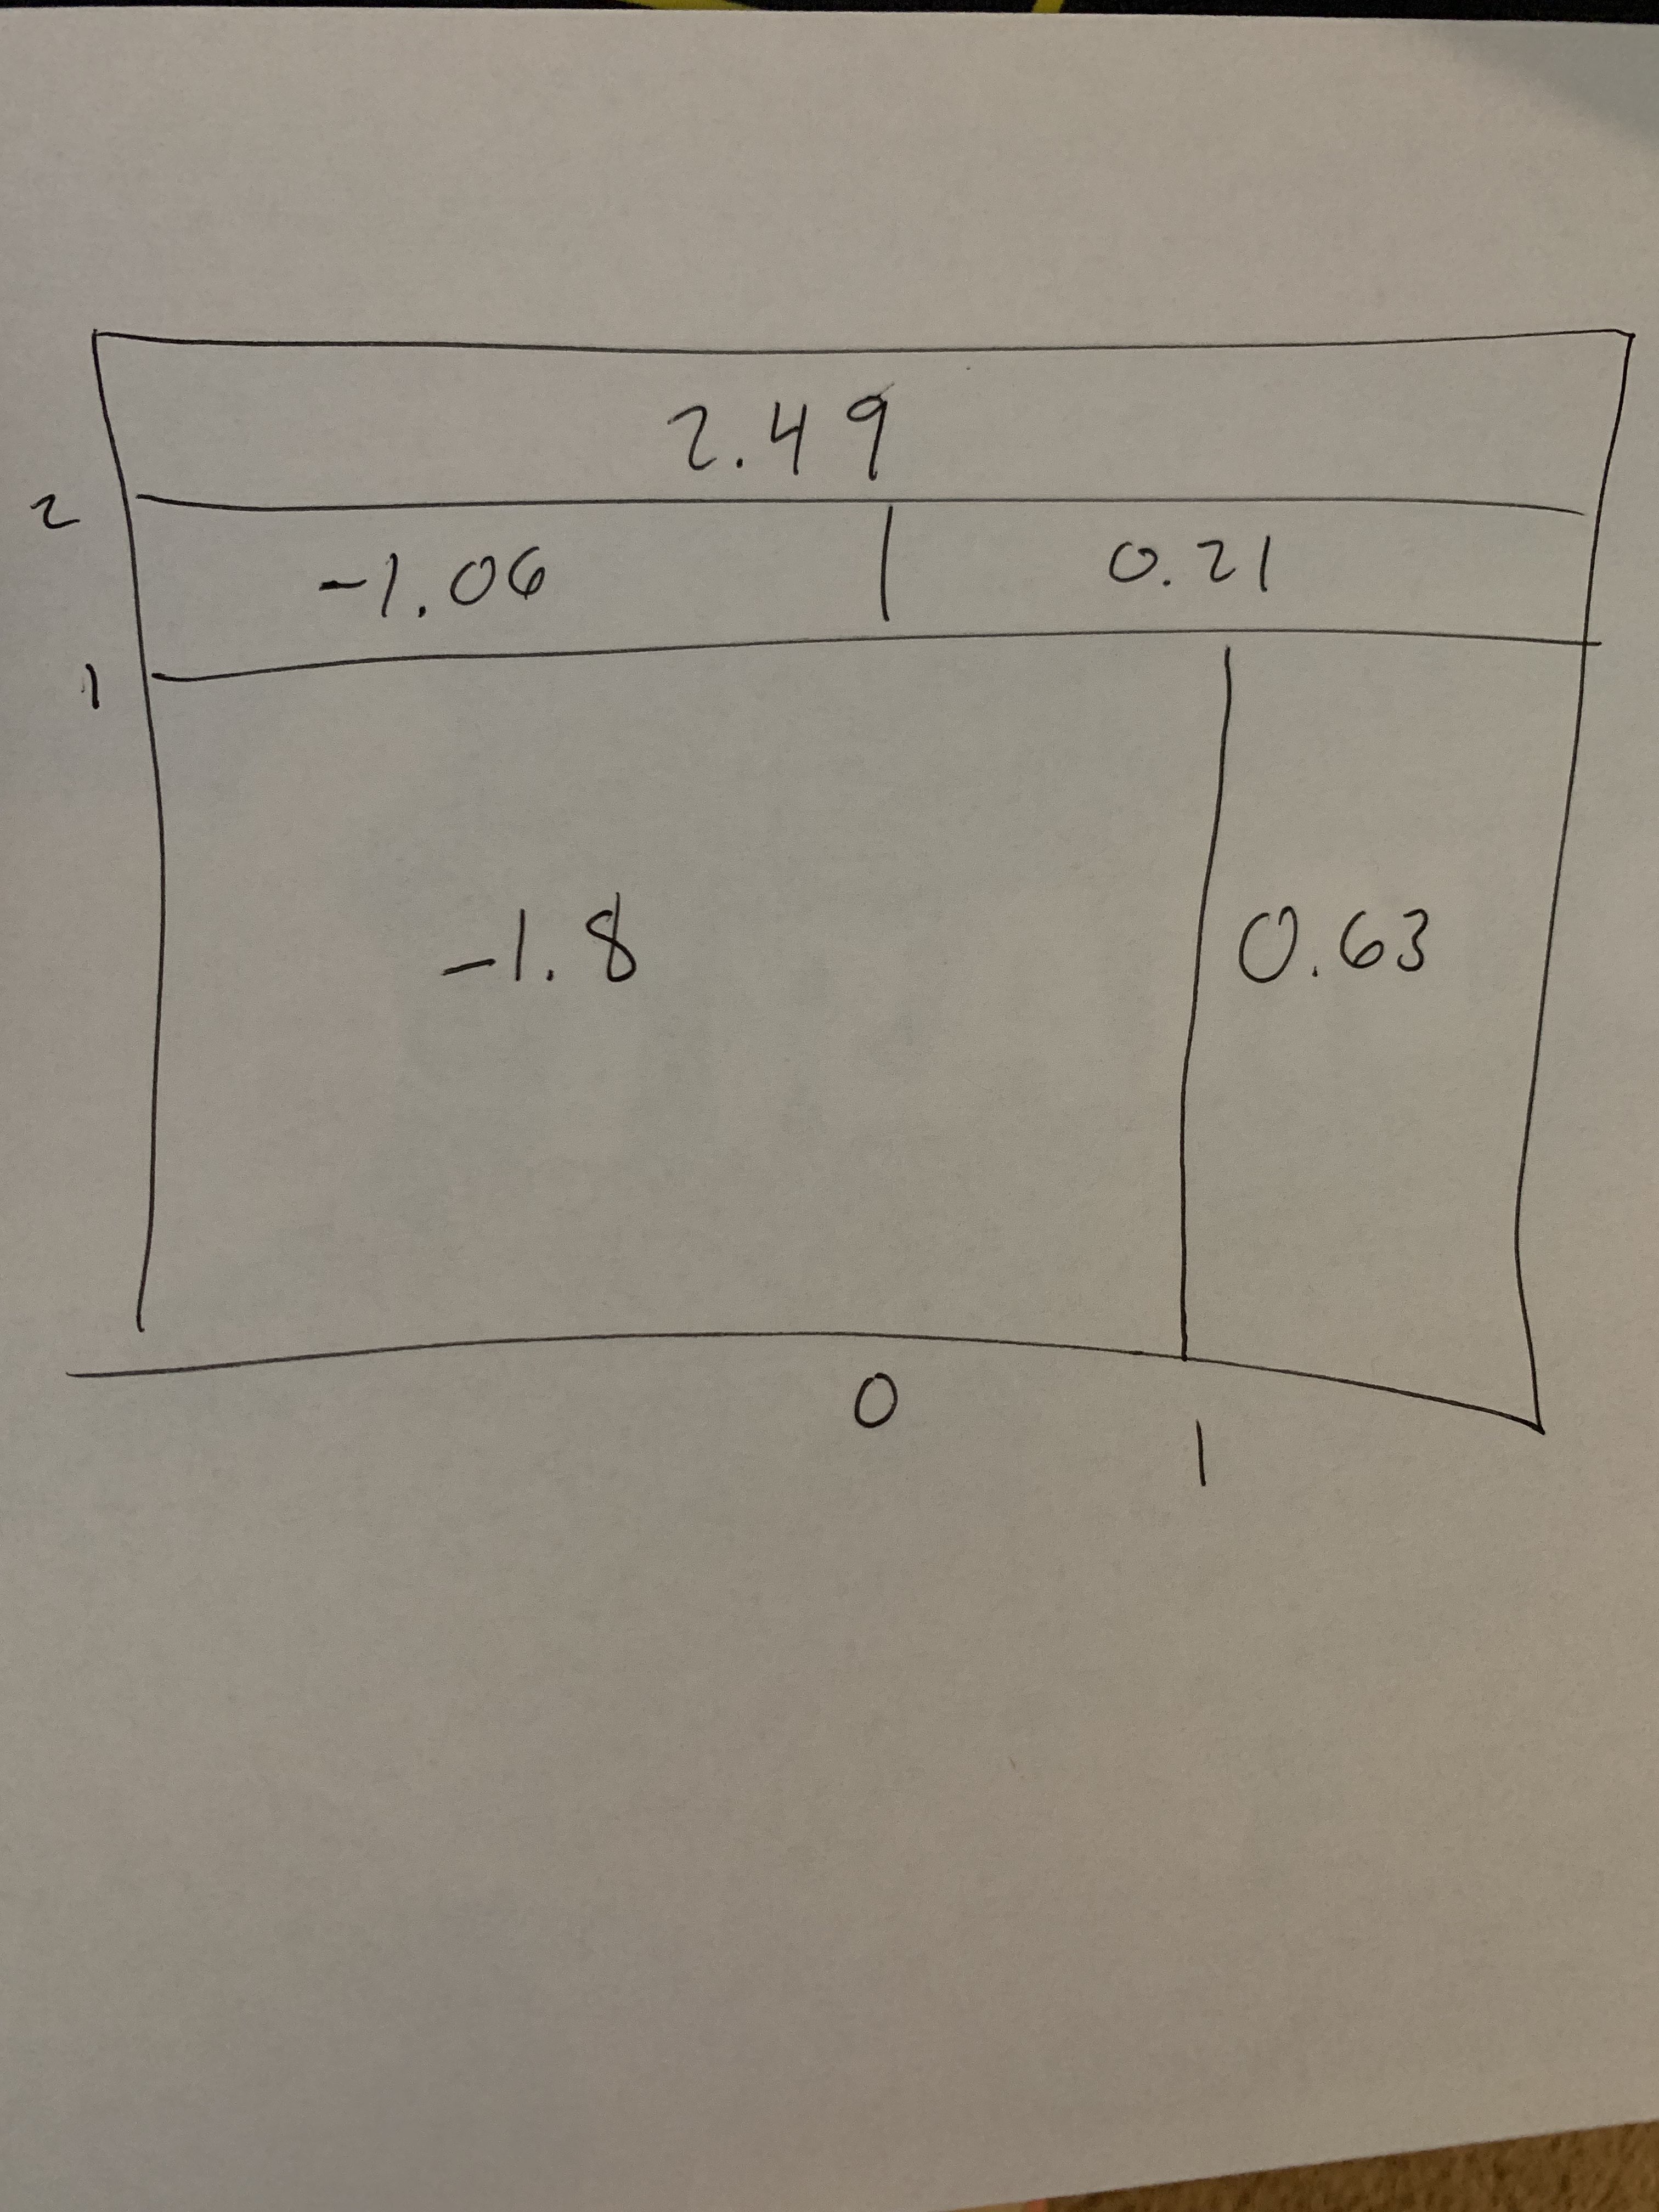 2.49
2
-1.06 0.21
1
-1.8 0.63
0
1